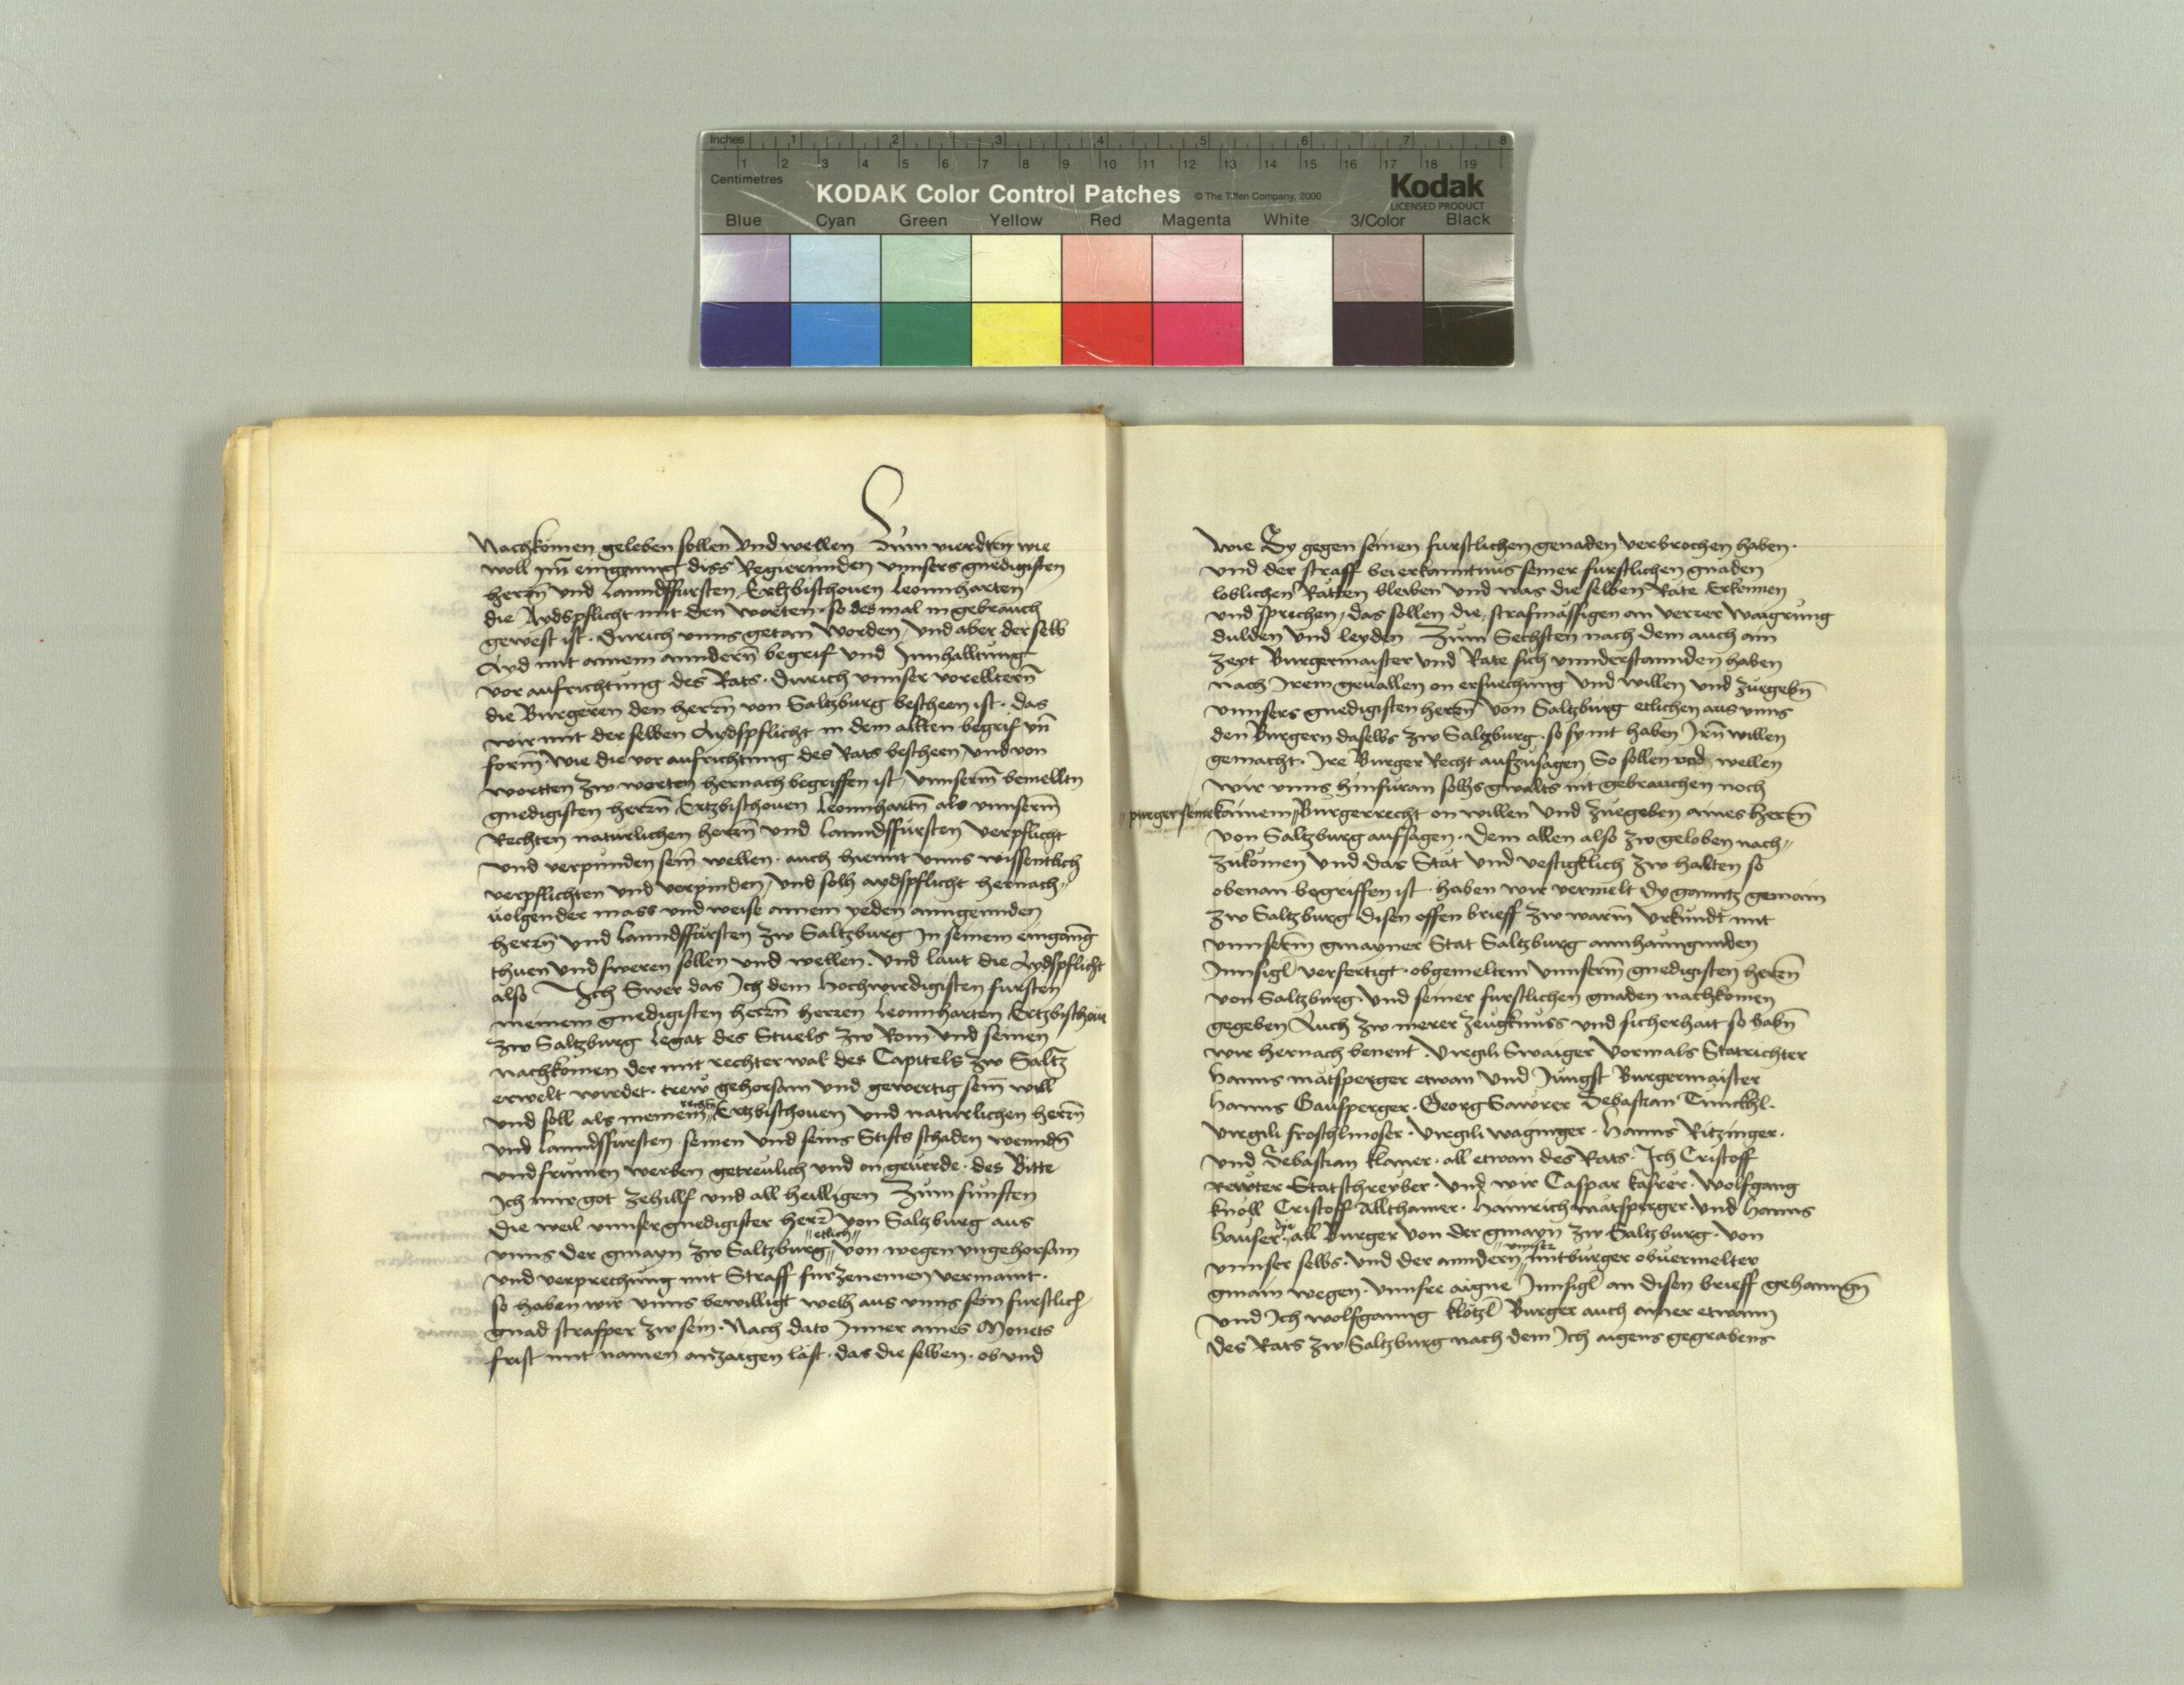 Inches 1 2 3 4 5 6 7 8
1 2 3 4 5 6 7 8 9 10 11 12 13 14 15 16 17 18 19
Centimetres
KODAK Color Control Patches © The Tiffen Company, 2000 Kodak
LICENSED PRODUCT
Blue Cyan Green Yellow Red Magenta White 3/Color Black
Nachkomen geleben sollen vnd wellen Zum vierdten wie
woll jm̄ einganng diss Regierunden vnnsers gnedigisten
herrn̄ vnd Lanndsfursten Ertzbischouen Leonnharten
die Aydspflicht mit den worten · so desmal in gebrauch
gewest ist · durich vnns getan worden / vnd aber derselb
Ayd mit ainem anndern̄ begrif vnd Jnnhalltung
vor aufrichtung des Rats · durich vnnser vorelltern̄
die Burgeren den herrn̄ von Saltzburg bescheen ist · das
wir mit derselben Aydspflicht in dem allten begrif vn̄
form̄ wie die vor aufrichtung des Rats bescheen / vnd von
wortten zw worten hernach begriffen ist / vnnserm̄ bemellten
gnedigisten herrn̄ Ertzbischouen Leonnhartn̄ als vnnserm̄
Rechten naturlichen herrn̄ vnd Lanndsfursten verpflicht
vnd verpunden sein̄ wellen · auch hiemit vnns wissentlich
verpflichten vnd verpinden / vnd solh aydspflicht hernach〃
uolgender mass vnd weise ainem yeden anngeunden
herrn̄ vnd Lanndsfursten zw Saltzburg in seinem einganḡ
thuen vnd sweren sollen vnd wellen · vnd laut die Aydspflicht
also Ich Swer das Ich dem hochwirdigisten fursten
meinem gnedigisten herrn̄ herren Leonnharten Ertzbischoue
zw Saltzburg Legat des Stuels zw Rom vnd seinen
nachkomen der mit rechter wal des Capitels zw Saltz
erwelt wirdet · trew gehorsam vnd gewertig sein̄ will
rechtn̄
vnd soll als meinem〃 Ertzbischouen vnd naturlichen herrn̄
vnd Lanndsfursten · seinen vnd seins Stifts schaden wenndn̄
vnd frumen werben getreulich vnd on geuerde · des Bitte
Ich mir got zehillf vnd all heilligen Zum funften
die weil vnnser gnedigister herr̄ von Saltzburg aus
〃etlich〃
vnns der gmayn zw Saltzburg〃 von wegen vngehorsam
vnd verprechung mit Straff furzenemen vermaint ·
so haben wir vnns bewilligt welh aus vnns sein furstlich
gnad strafper zw sein · Nach dato Inner aines Monets
frist mit namen anzaigen last · das die selben · ob vnd
wie Sy gegen seinen furstlichen genaden verbrochen haben ·
vnd der straff bei erkanntnus seiner furstlichen gnaden
loblichen Räten bleiben vnd was die selben Räte Erkennen
vnd sprichen / das sollen die strafmässigen an verrer waigrung
dulden vnd leyden Zum Sechsten nach dem auch ain
zeyt Burgermaister vnd Räte sich vnnderstannden haben
nach Irem geuallen on ersuechung vnd willen vnd zuegebn̄
vnnsers gnedigisten herrn̄ von Saltzburg etlichen aus vnns
den Burgern daselbs zw Saltzburg · so sy nit haben Irn̄ willen
gemacht · Ire Burger Recht aufzusagen So sollen vnd wellen
wir vnns hinfuran solhs gwalts nit gebrauchen noch
〃purger sein kainem〃 Burgerrecht on willen vnd zuegeben aines herrn̄
von Saltzburg aufsagen · dem allen also zw geloben nach〃
zukomen vnd das Stät vnd vestigklich zw halten so
obenan begriffen ist · haben wir vermelt dy ganntz gemain
zw Saltzburg disen offen brieff zw warm̄ vrkundt mit
vnnserm̄ gmayner Stat Saltzburg annhanngunden
Innsigl verfertigt · obgemeltem vnnserm̄ gnedigisten herrn̄
von Saltzburg · vnd seiner furstlichen gnaden nachkomen
gegeben Auch zw merer zeugknuss vnd sicherhait so habn̄
wir hernach benent · Virgili Swaiger vormals Statrichter
Hanns mätsperger etwan vnd Jungst Burgermaister
Hanns Gausperger · Georg Sawrer Sebastian Tunckhl ·
Virgili froschlmoser · Virgili waginger · Hanns Ritzinger ·
vnd Sebastian klaner · all etwan des Rats · Ich Cristoff
rewter Statschreyber · vnd wir Caspar kasrer · wolfgang
knoll Cristoff Allthamer · Hainrich mätsperger · vnd Hanns
dye
Hauser · all Burger von der gmayn zw Saltzburg · von
〃vnnser
vnnser selbs · vnd der anndern〃 mitburger obuermelter
gmain wegen · vnnsre aigne Innsigl an disen brieff gehanngn̄
vnd Ich wolfganng klötzl Burger auch ainer etwann
des Rats zw Saltzburg nach dem Ich aigens gegrabens